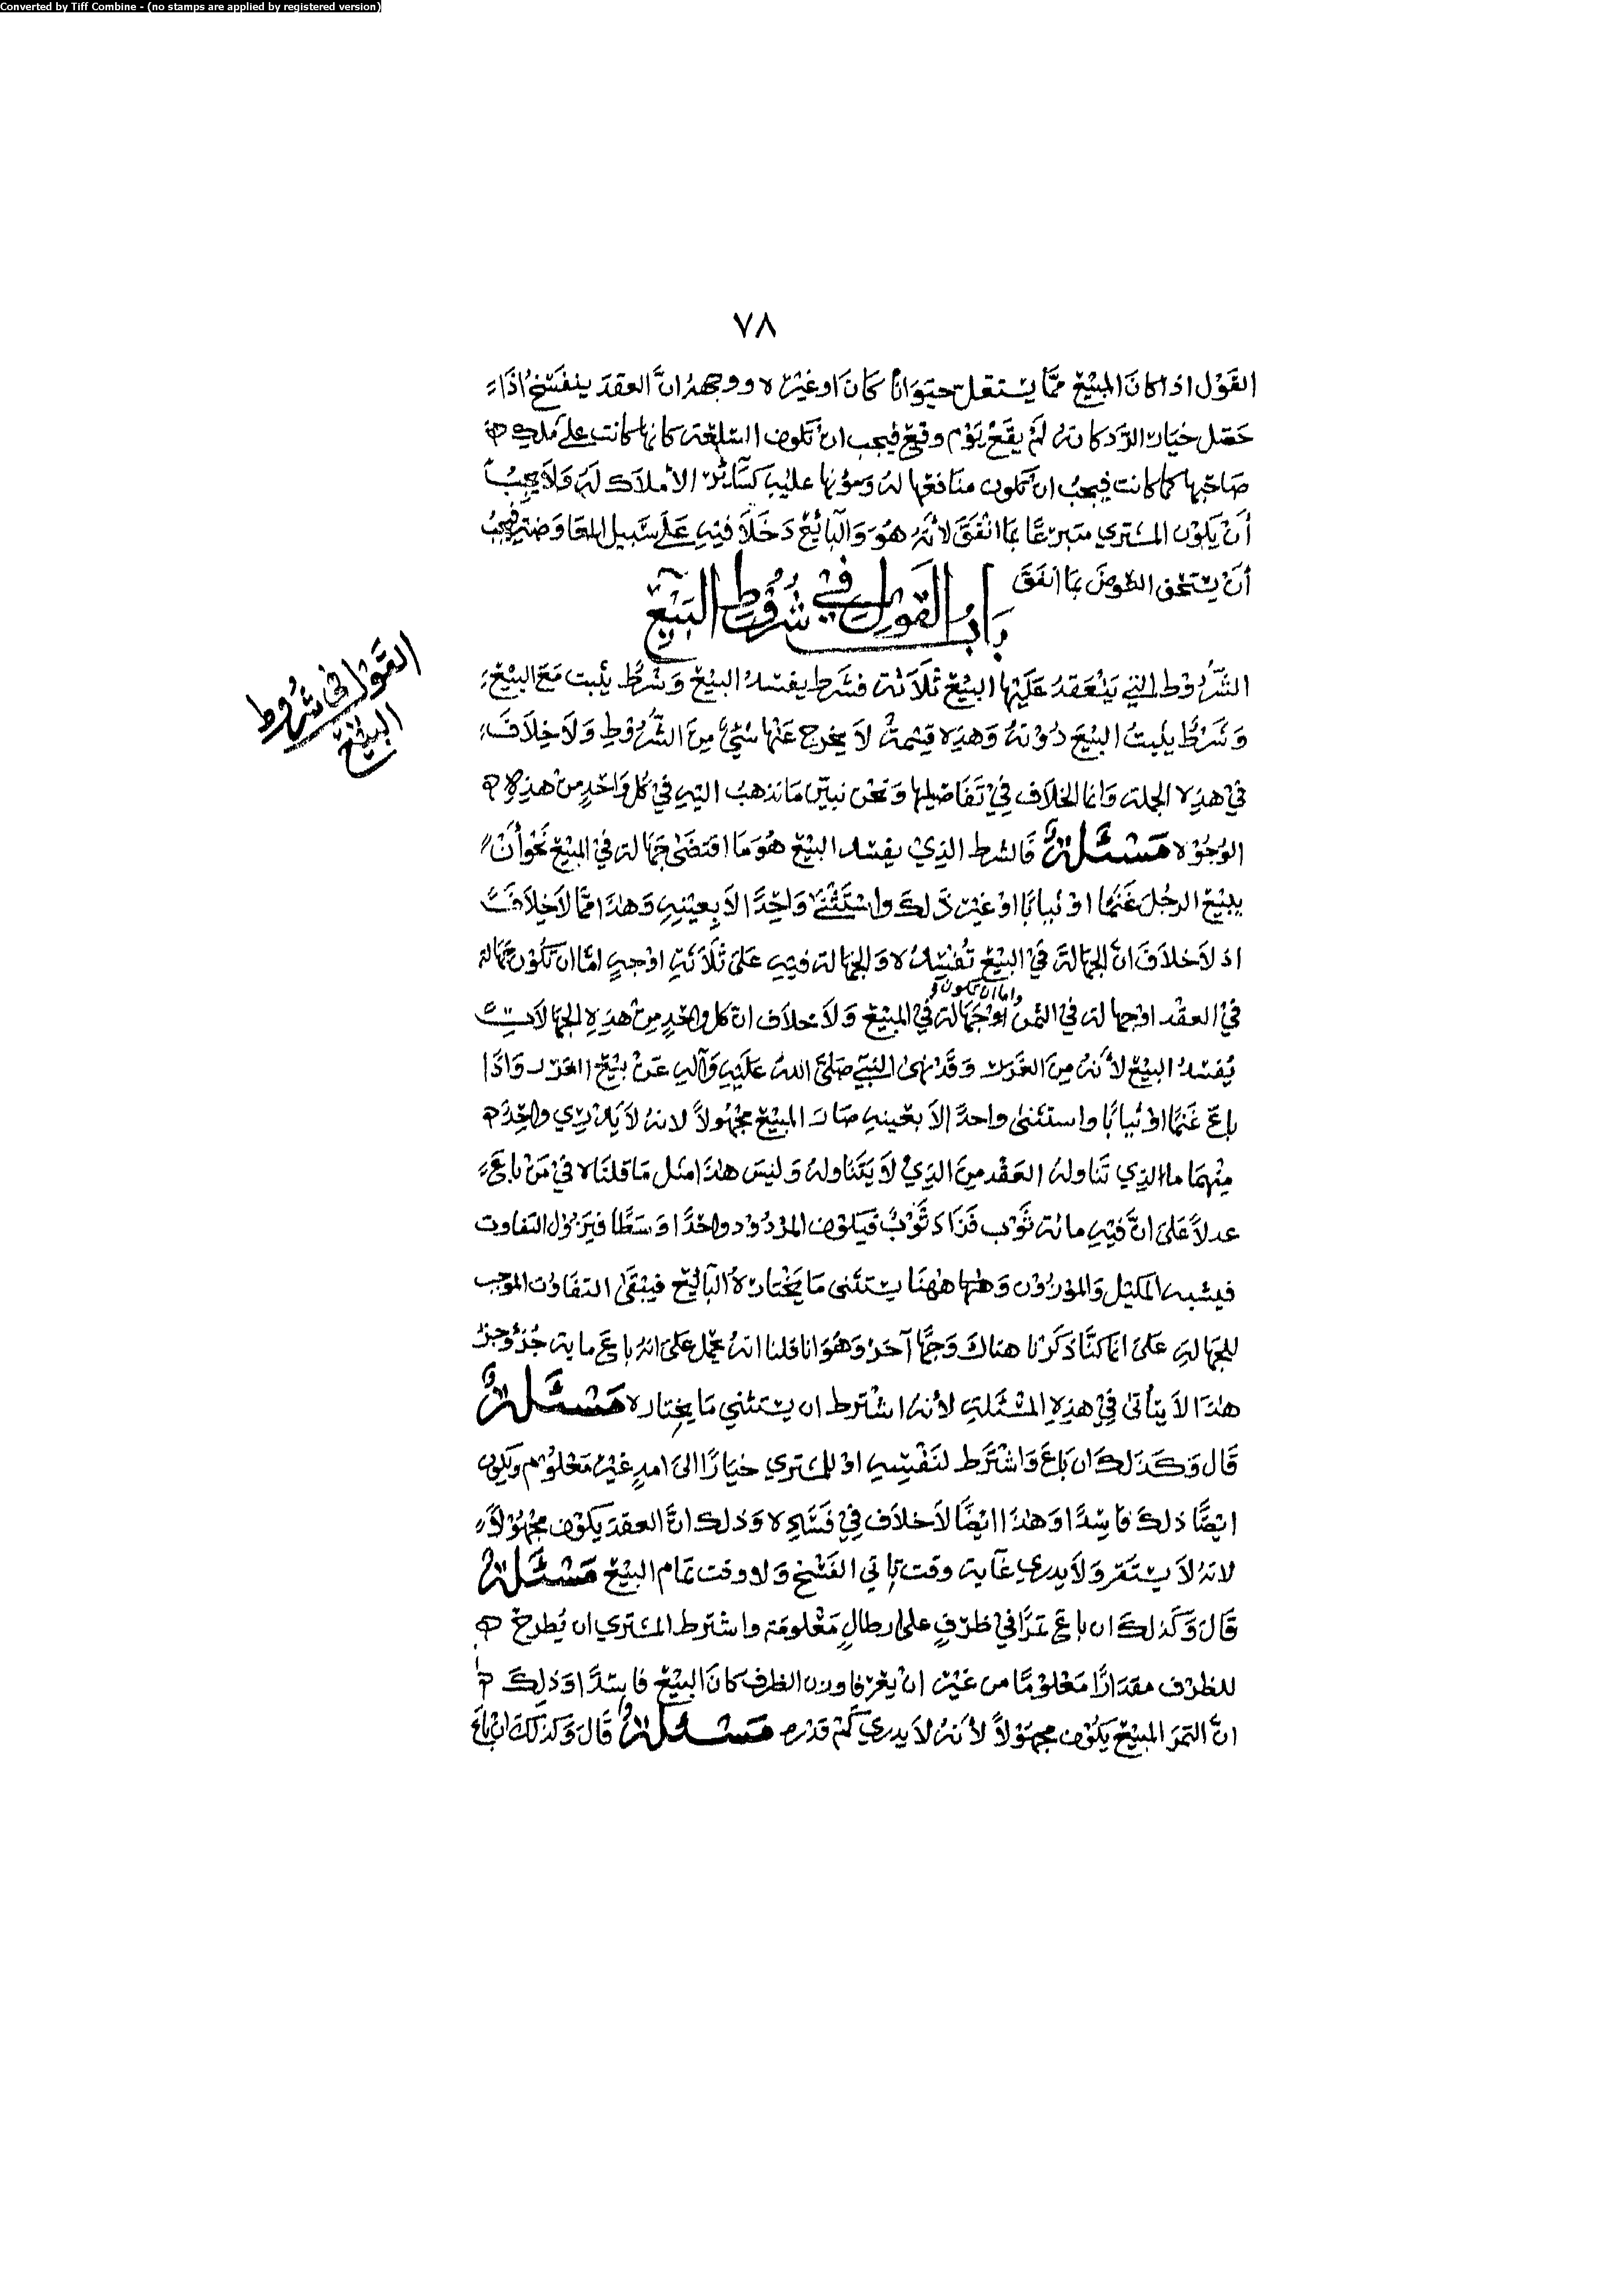 Converted by Tiff Combine - (no stamps are applied by registered version)
٧٨
القَوْل اذا كانَ المبيْع ممَّا يسْتغل حيَوَانًا كانَ او غيْره ووجههُ انَّ العقدَ ينفسخ اذَا
حَصَل خيَار الرَّد كانهُ لَمْ يقعْ يَوْم وقعَ فيجب انْ تكون السّلعَة كانها كانت على ملك
صَاحبها كما كانت فيجبُ انْ تكون منَافعها لهُ ومؤنها عليْهِ كسَائر الأملاك لهُ وَلاَ يجبُ
أنْ يكوْن المشتري متبرعًا بمَا انْفَقَ لأنَّهُ هُوَ وَالبائعْ دَخَلاَ فيهِ عَلَى سَبيل المعَاوَضَة فيجبُ
أنْ يسْتحق العوَضَ بمَا انفَقَ
بَابُ القَوْل فيْ شرُوْط البَيْع
القَوْل فى شرُوط
البيْع
الشرُوْط التي يَنْعَقدُ عَلَيْهَا البيْع ثَلاَثَة فشَرط يفسدُ البيْع وَشرْط يثبت مَعَ البيْع
وَشَرْطٌ يثبتُ البيْعَ دُوْنهُ وَهذِه قسْمَةٌ لاَ يخرج عَنْها شيْءٌ مِنَ الشُّرُوْطِ وَلاَ خِلاَفَ
فيْ هذِه الجملة وَانما الخلاَف فِيْ تَفَاصيلها وَنحْن نبيّن مَا نذهبُ اليْهِ فيْ كُل وَاحدٍ منْ هذِهِ
الوُجُوْه مَسْئَلَةٌ فَالشرط الذِيْ يفسد البيْع هُوَ مَا اقتضَىٰ جَهَالة فيْ المبيْع نَحْوَ أنْ
يبيْع الرجُل غَنَمًا اوْ ثيابًا اوْ غيْر ذَلك وَاسْتثْنَىٰ وَاحِدًا لاَ بِعيْنِهِ وَهذَا ممَّا لاَ خِلاَفَ
اذ لاَ خلاَفَ انَّ الجهَالَةَ فيْ البيْع تُفسِدُه وَالجهَالة فيْهِ عَلىٰ ثَلاَثَةِ اوْجهٍ امَّا انْ تَكُوْن جَهَالة
فيْ العقْد اوْ جهَالة في الثمن اوْ جَهَالة فيْ المبيْع وَلاَ خلاَف انّ كل واحدٍ منْ هذِهِ الجهَالاَتِ
واما ان تكون
يُفسدُ البيْع لأَنهُ مِنَ الغَرَر وَقَدْ نهىٰ النبيّ صَلىَّ اللهُ عَليْهِ وَآلهِ عَنْ بيْع الغَرَر وَاذَا
باعَ غَنَمًا اوْ ثيابًا وَاستثنىٰ واحدًا لاَ بعيْنهِ صَار المبيْع مجْهُولاً لانهُ لاَ يَدْري وَاحِد
مِنْهمَا ما الذِي تَنَاولهُ العَقْد مِنَ الذِيْ لاَ يَتَنَاولهُ وَليسَ هذَا مثل مَا قلنَاه فيْ مَنْ باعَ
عدلاً عَلىَ انَّ فيْهِ مائة ثوْب فَزَادَ ثَوْبٌ فيَكوْن المرْدُوْد واحدًا وَسَطًا فيَزوْل التفاوت
فيشبه المكيْل وَالموْزوْن وَههُنَا يستثنى مَا يَخْتارهُ البَائع فيبْقَىٰ التفَاوُت الموْجب
للجهَالهِ عَلىَ انا كنَّا ذكَرْنا هناكَ وَجْهًا آخَر وَهُوَ انا قلنا انهُ يحْمل عَلىَ انهُ باعَ ماية جُزْءٍ وجزْ
هذَا لاَ يتأتىٰ فيْ هذِهِ المسْئَلهِ لأنهُ اشْترط ان يسْتثني مَا يختاره مَسْئَلَةٌ
قَال وَكَذلكَ ان باعَ وَاشْتَرط لنَفْسِهِ اوْ للمشتري خيَارًا الىٰ امدٍ غيْر مَعْلوْم ويَكون
ايْضًا ذلكَ فَاسِدًا وَهذَا ايْضًا لاَ خلاَف فيْ فسَادِه وَذلك انَّ العقدَ يكوْن مجْهُوْلاً
لانهُ لاَ يسْتَقر وَلاَ يدري غاية وقت يأتي الفَسْخ وَلا وقت تمَام البيْع مَسْئَلَةٌ
قَالَ وَكَذلكَ ان باعَ تمرًا فيْ ظرْفٍ على ارطالٍ مَعْلومَة واشترط المشتري ان يُطرح
للظرْف مقدَارًا مَعْلوْمًا من غيْر انْ يعْرفا وزن الظرف كانَ البيْع فاسِدًا وَذلكَ
انَّ التمرَ المبيْع يَكُوْن مجهوْلاً لأنهُ لاَ يدري كَمْ قدْره مَسْئَلَةٌ قَالَ وَكذلكَ انْ باعَ